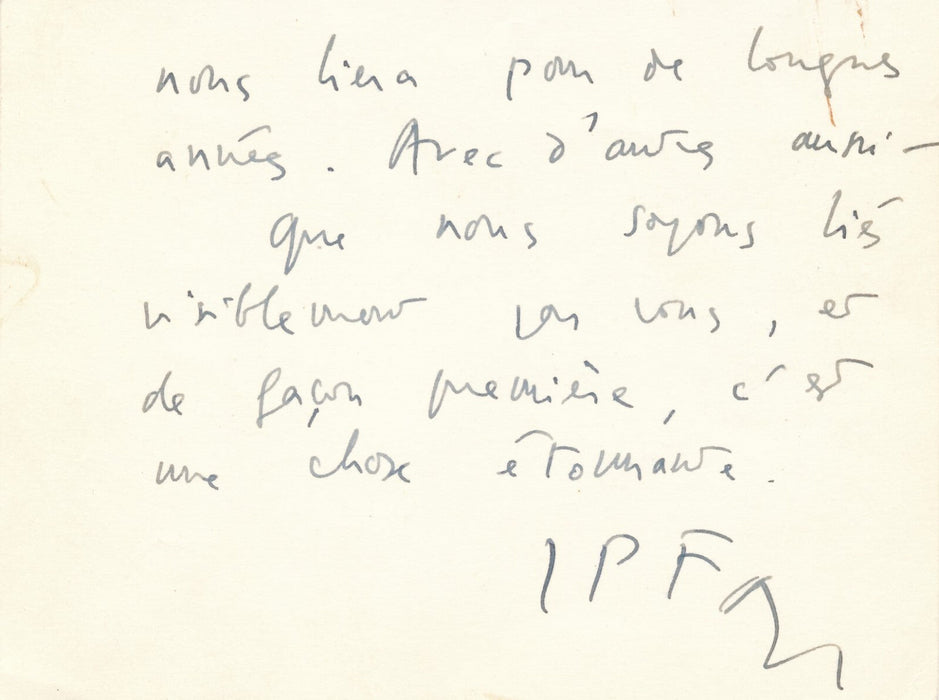 nous liera pour de longues
années. Avec d'autres aussi —
que nous soyons liés
visiblement par vous, et
de façon première, c'est
une chose étonnante.
JPF